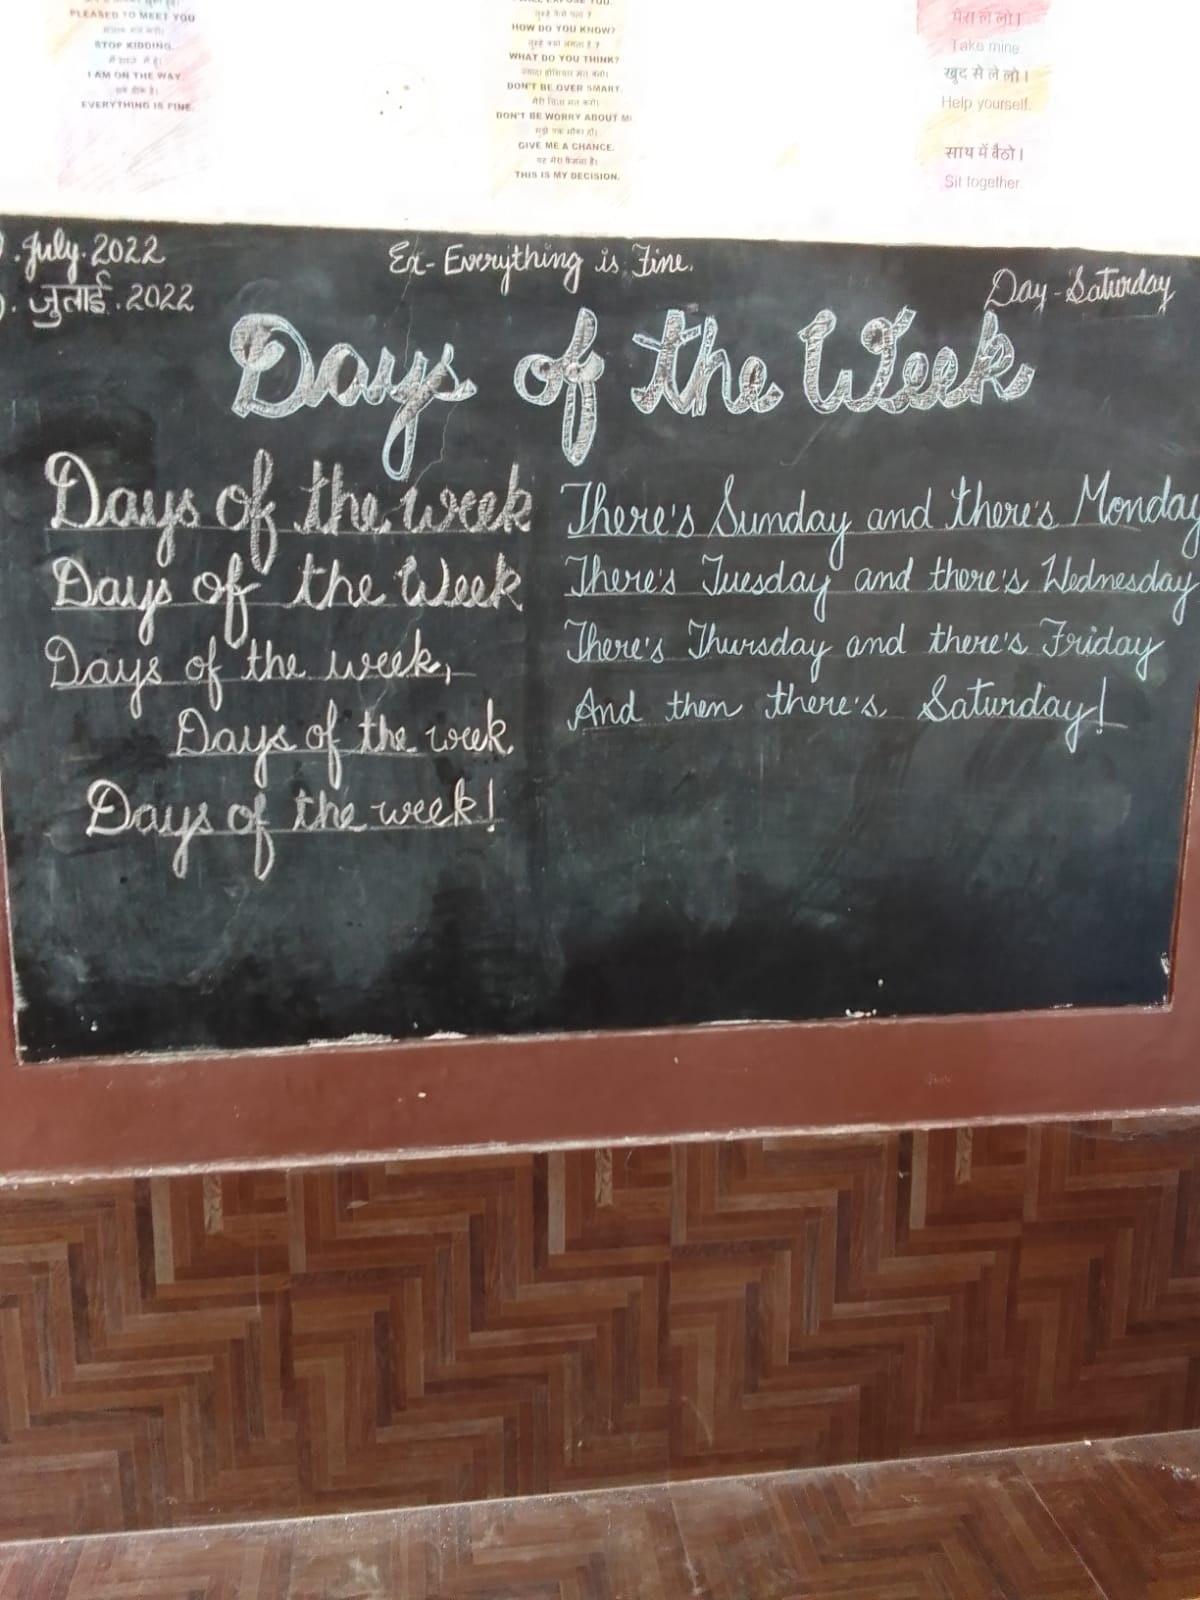 PLEASED TO MEET YOU
STOP KIDDING.
I AM ON THE WAY.
सब ठीक है।
EVERYTHING IS FINE.
तुम्हे कैसे पता ?
HOW DO YOU KNOW?
तुम्हे क्या लगता है ?
WHAT DO YOU THINK?
ज्यादा होशियार मत बनो।
DON'T BE OVER SMART.
मेरी चिंता मत करो।
DON'T BE WORRY ABOUT
मुझे एक मौका दो।
GIVE ME A CHANCE.
यह मेरा फैसला है।
THIS IS MY DECISION.
मेरा ले लो।
Take mine.
खुद से ले लो।
Help yourself.
साथ में बैठो।
Sit together.
. July. 2022
. जुलाई. 2022
Ex- Everything is Fine.
Day - Saturday
Days of the Week
Days of the week
Days of the Week
Days of the week,
Days of the week.
Days of the week!
There's Sunday and there's Monday
There's Tuesday and there's Wednesday
There's Thursday and there's Friday
And then there's Saturday!